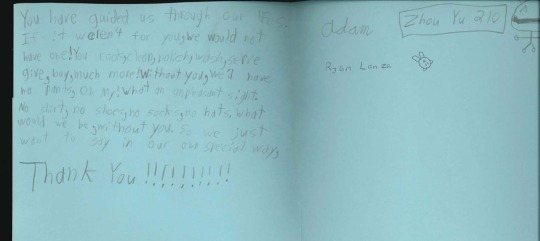 You have guided us through our lives.
If it weren't for you, we would not
have one! You cook, clean,
give, buy, much more! Without you, we'd have
no pants, Oh My! What an unpleasant sight.
No shirts, no shoes, no socks, no hats, what
would we be, without you. So we just
want to say in our own special way,
Thank You !!!!!!!!!
Adam
Zhou Yu 210
Ryan